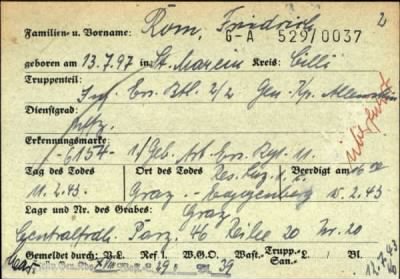 Familien- u. Vorname: Röm, Friedrich 2
G-A 529/0037
geboren am 13.7.97 in St. Marein Kreis: Cilli
Truppenteil:
Inf. Ers. Btl. 2/2 Gen. Kp. Allenstein
Dienstgrad:
Erkennungsmarke:
-6154- 1/Geb. Art. Ers. Rgt. 11.
Tag des Todes Ort des Todes Res. Laz. Beerdigt am
11.2.43 Graz - Eggenberg 15.2.43
Lage und Nr. des Grabes: Graz
Zentralfrdh. Parz. 46 Reihe 20 Nr. 20
Gemeldet durch: V.L. Ref. 1. W.G.O. Wast. Trupp. San. L. Bl.
XVIII 39
12.7.43